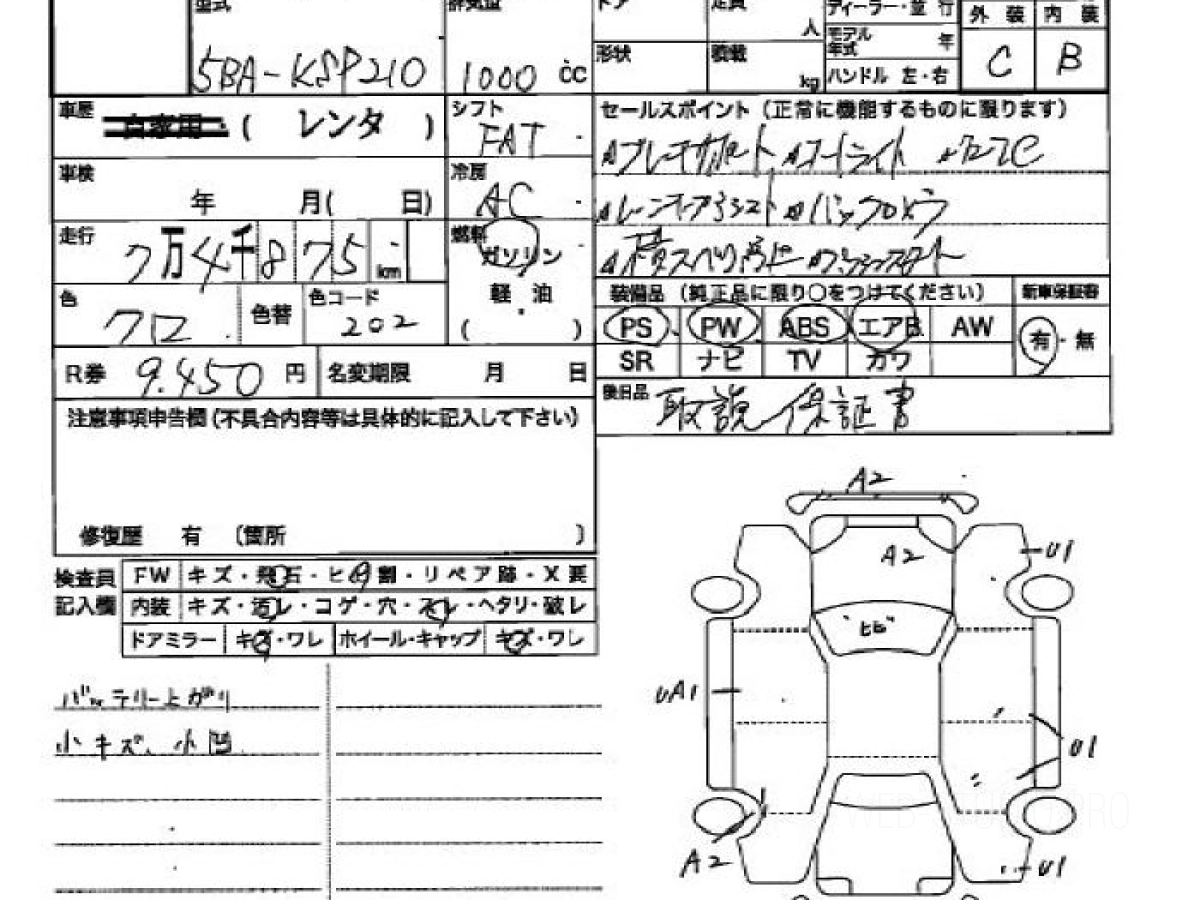 型式
5BA-KSP210
排気量
1000 cc
ドア
形状
定員
人
積載
kg
ディーラー・並 行
モデル
年式 年
ハンドル 左・右
外 装 内 装
C B
車歴 自家用・( レンタ )
シフト
FAT
車検
年 月( 日)
冷房
AC
走行 7万4千875 km
燃料
ガソリン
軽 油
( )
色
クロ
色替
色コード
202
R券 9.450 円
名変期限 月 日
セールスポイント (正常に機能するものに限ります)
装備品 (純正品に限り○をつけてください) 新車保証書
PS PW ABS エアB AW 有・無
SR ナビ TV カワ
後日品 取説 保証書
注意事項申告欄(不具合内容等は具体的に記入して下さい)
修復歴 有 (箇所 )
検査員
記入欄
FW キズ・飛石・ヒビ割・リペア跡・X要
内装 キズ・汚レ・コゲ・穴・スレ・ヘタリ・破レ
ドアミラー キズ・ワレ ホイール・キャップ キズ・ワレ
バッテリー上がり
小キズ、小凹
A2
A2
U1
ヒビ
UA1
U1
A2
U1